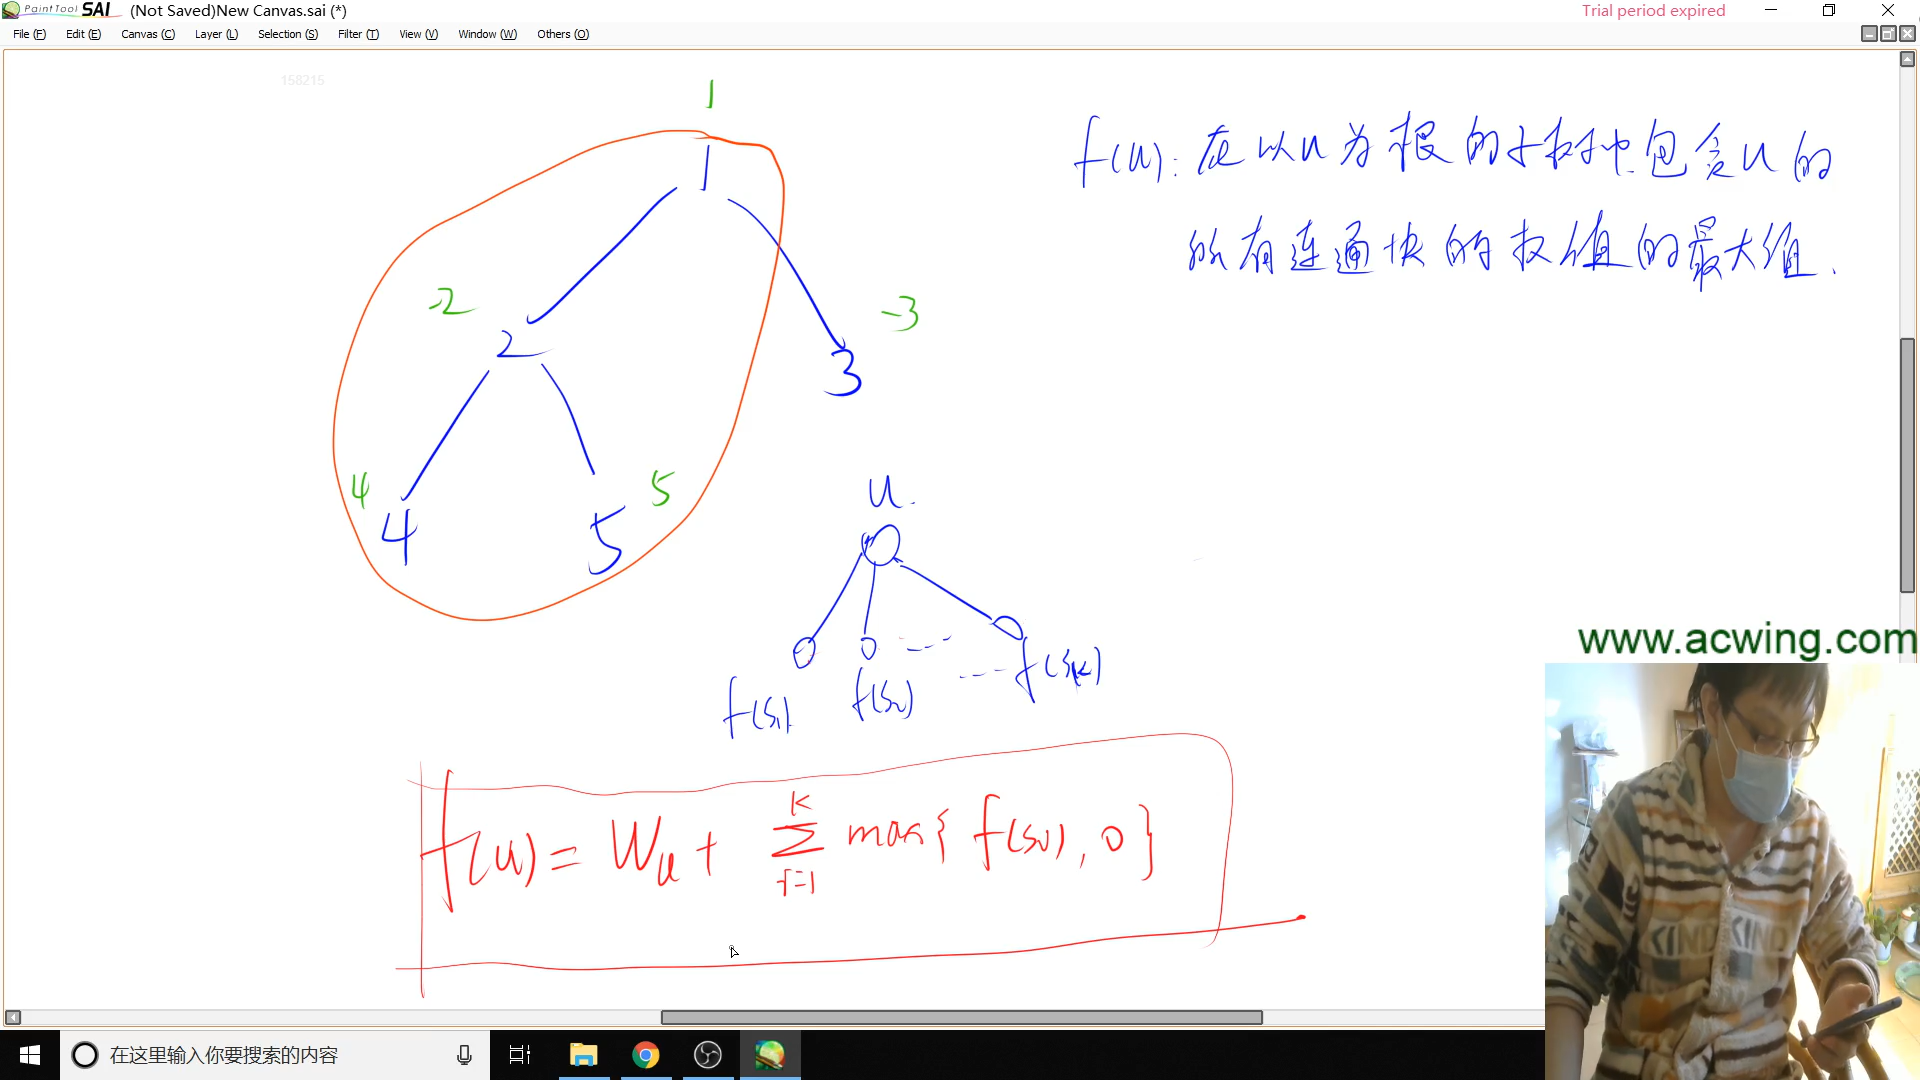 PaintTool SAI (Not Saved)New Canvas.sai (*)
Trial period expired
File (F) Edit (E) Canvas (C) Layer (L) Selection (S) Filter (T) View (V) Window (W) Others (O)
158215
1
1
f(u): 在以u为根的子树中包含u的
所有连通块的权值的最大值.
-2
2
-3
3
4
4
5
5
u
f(S1) f(S2) --- f(Sk)
www.acwing.com
f(u) = Wu + K Σ i=1 max{ f(Si), 0 }
KIND KIND
在这里输入你要搜索的内容